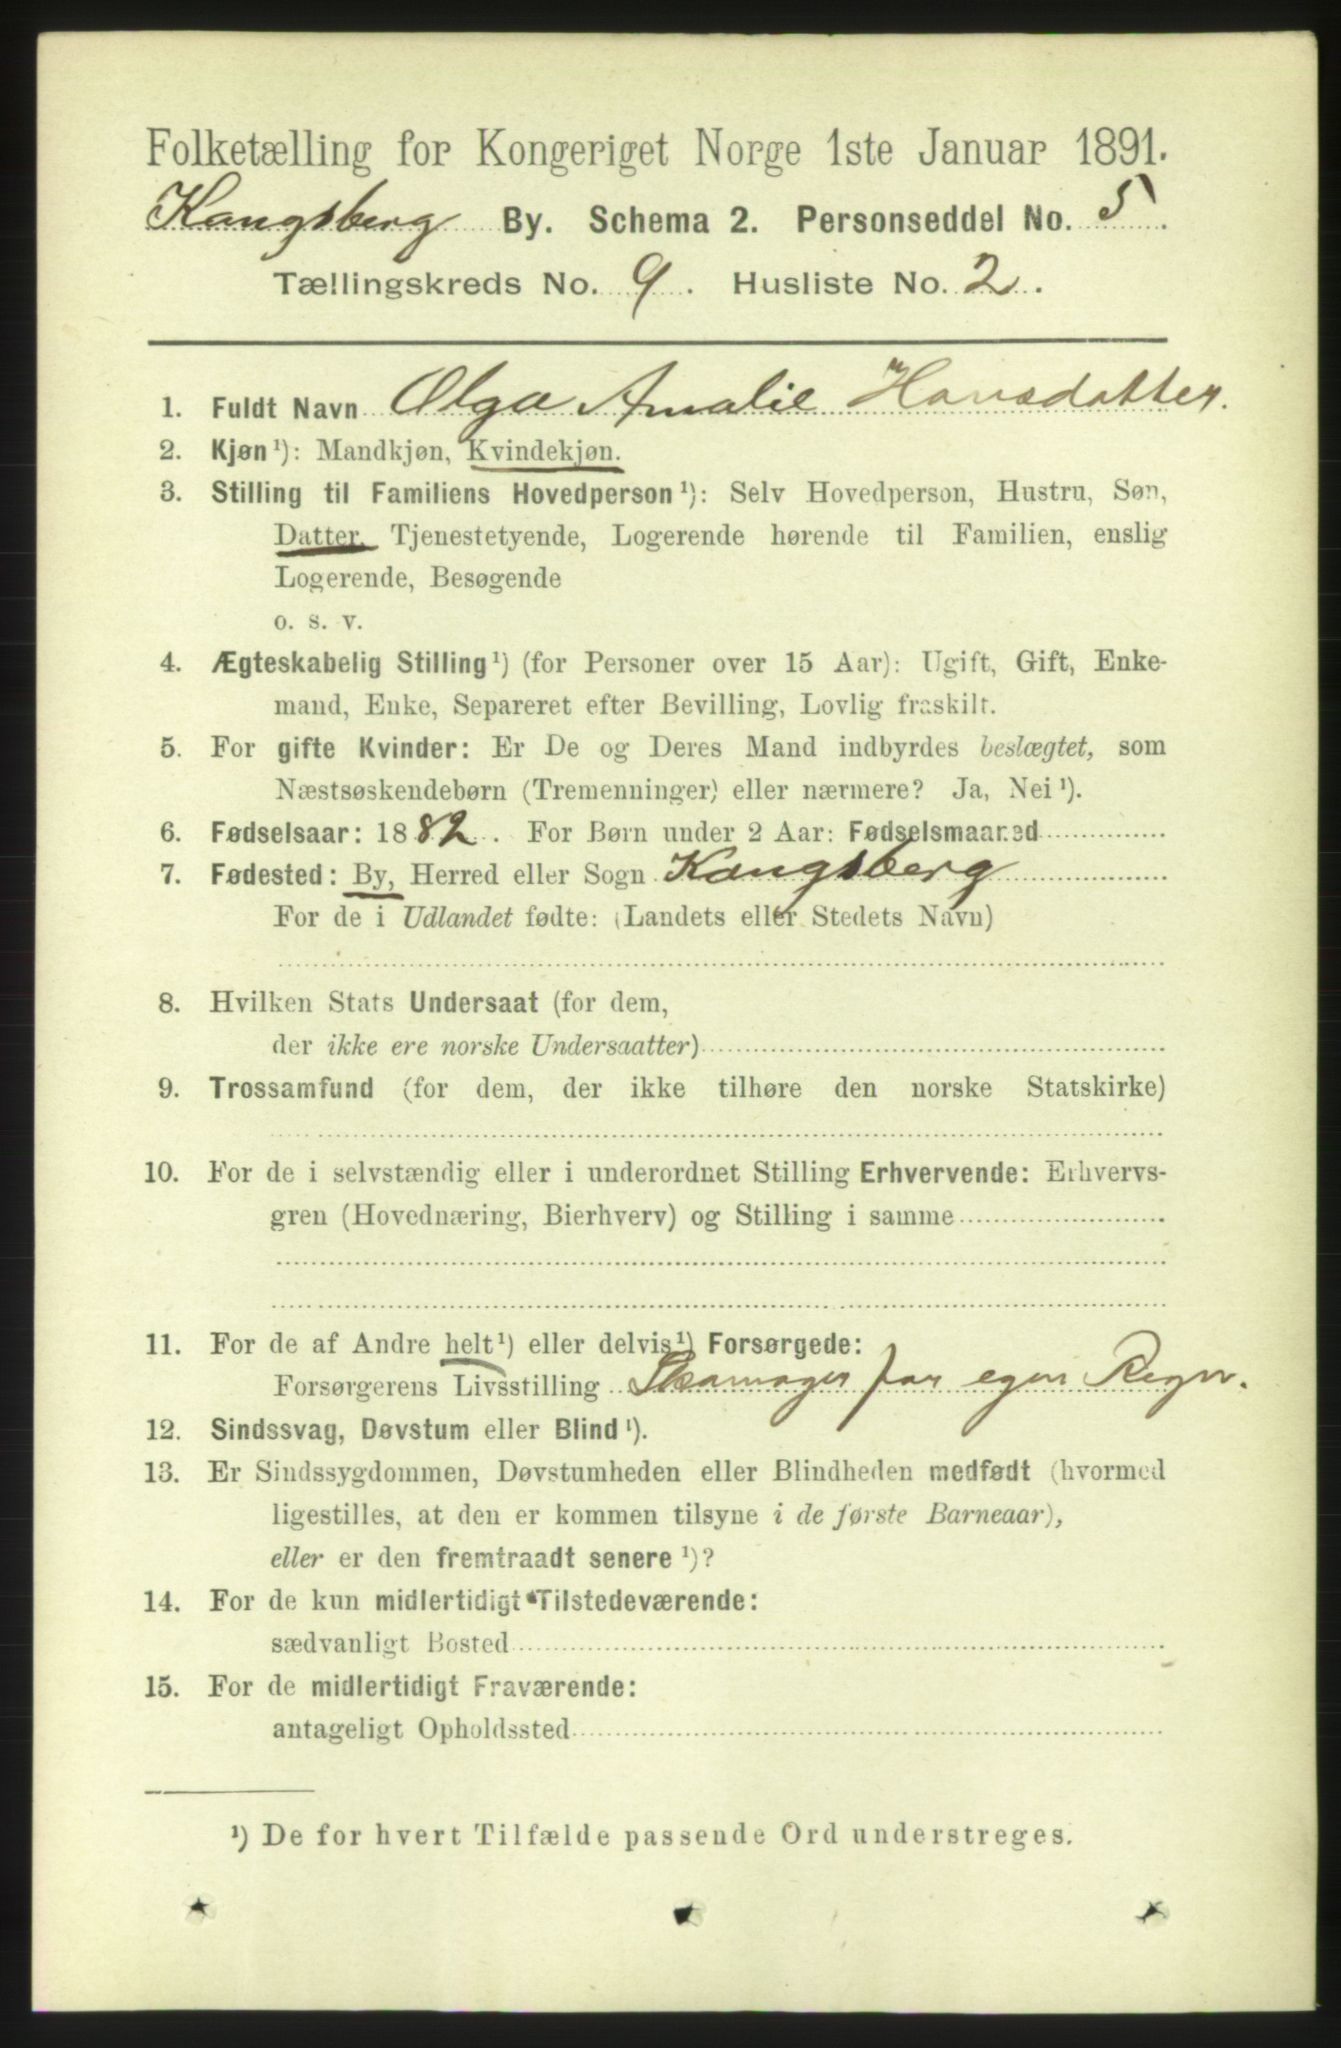 Folketælling for Kongeriget Norge 1ste Januar 1891.
Kongsberg By. Schema 2. Personseddel No. 5.
Tællingskreds No. 9. Husliste No. 2.
1. Fuldt Navn Olga Amalie Hansdatter.
2. Kjøn¹): Mandkjøn, Kvindekjøn.
3. Stilling til Familiens Hovedperson¹): Selv Hovedperson, Hustru, Søn,
Datter, Tjenestetyende, Logerende hørende til Familien, enslig
Logerende, Besøgende
o. s. v.
4. Ægteskabelig Stilling¹) (for Personer over 15 Aar): Ugift, Gift, Enke-
mand, Enke, Separeret efter Bevilling, Lovlig fraskilt.
5. For gifte Kvinder: Er De og Deres Mand indbyrdes beslægtet, som
Næstsøskendebørn (Tremenninger) eller nærmere? Ja, Nei¹).
6. Fødselsaar: 1882. For Børn under 2 Aar: Fødselsmaaned
7. Fødested: By, Herred eller Sogn Kongsberg
For de i Udlandet fødte: (Landets eller Stedets Navn)
8. Hvilken Stats Undersaat (for dem,
der ikke ere norske Undersaatter)
9. Trossamfund (for dem, der ikke tilhøre den norske Statskirke)
10. For de i selvstændig eller i underordnet Stilling Erhvervende: Erhvervs-
gren (Hovednæring, Bierhverv) og Stilling i samme
11. For de af Andre helt¹) eller delvis¹) Forsørgede:
Forsørgerens Livsstilling Skomager for egen Regn.
12. Sindssvag, Døvstum eller Blind¹).
13. Er Sindssygdommen, Døvstumheden eller Blindheden medfødt (hvormed
ligestilles, at den er kommen tilsyne i de første Barneaar),
eller er den fremtraadt senere¹)?
14. For de kun midlertidigt Tilstedeværende:
sædvanligt Bosted
15. For de midlertidigt Fraværende:
antageligt Opholdssted
¹) De for hvert Tilfælde passende Ord understreges.